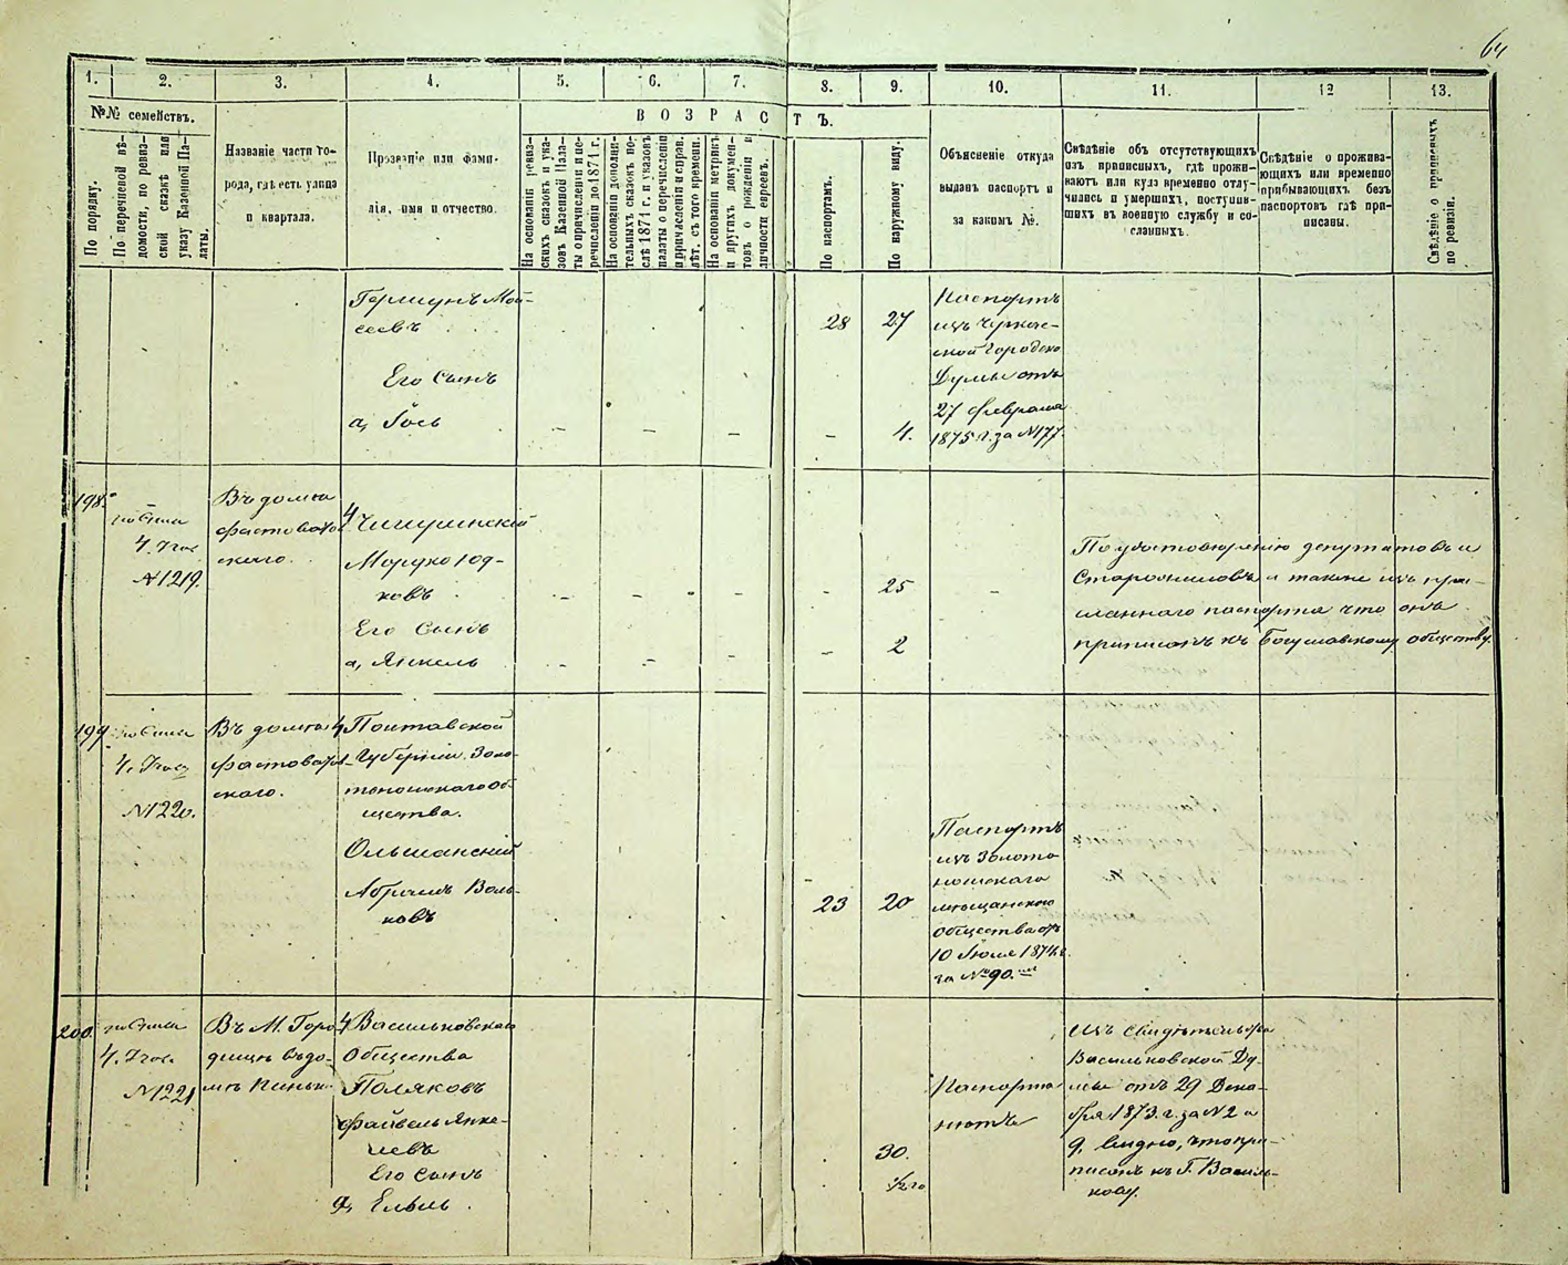 64
1. 2. 3. 4. 5. 6. 7. 8. 9. 10. 11. 12 13.
№№ семействъ.
В О З Р А С Т Ъ.
По порядку.
По перечневой вѣ-
домости, по ревиз-
ской сказкѣ или
указу Казенной Па-
латы.
Названіе части го-
рода, гдѣ есть улица
и квартала.
Прозваніе или фами-
лія, имя и отчество.
На основаніи ревиз-
скихъ сказокъ и ука-
зовъ Казенной Пала-
ты о причисленіи и пе-
речисленіи до 1871 г.
На основаніи дополни-
тельныхъ сказокъ по-
слѣ 1871 г. и указовъ
палаты о перечисленіи
и причисленіи исправ.
лѣт. съ того времени.
На основаніи метрикъ
и другихъ докумен-
товъ о рожденіи и
личности евреевъ.
По паспортамъ.
По наружному виду.
Объясненіе откуда
выданъ паспортъ и
за какимъ №.
Свѣдѣніе объ отсутствующихъ
изъ приписныхъ, гдѣ прожи-
ваютъ или куда временно отлу-
чились и умершихъ, поступив-
шихъ въ военную службу и со-
сланныхъ.
Свѣдѣніе о прожива-
ющихъ или временно
прибывающихъ безъ
паспортовъ гдѣ при-
писаны.
Свѣдѣніе о
по ревизіи.
Гершунъ Мой-
сеевъ
Его Сынъ
а, Іось
28 27
4.
Паспортъ
изъ Черкас-
ской Городско
Думы отъ
27 февраля
1875 г. за №177.
198.
4. Учас
№1219.
Въ домѣ
Фастовскаго.
4 Чигиринскій
Мордко Юд-
ковъ
Его Сынъ
а, Янкель
25
2
По удостовѣренію депутатовъ и
Старостиловъ а также изъ
паспорта что она
приписанъ къ Богуславскому обществу.
199
4. Учас
№1220.
Въ домѣ
скаго.
4 Полтавской
Губерніи Золо-
тоношскаго Об-
щества.
Ольшанскій
Абрамъ Воль-
ковъ
23 20
Паспортъ
изъ Золото
ношскаго
мѣщанскаго
Общества отъ
10 Іюля 1874 г.
за №90.
200.
4. Учас.
№1221
Въ М. Горо
дищѣ въ до-
мѣ
4 Васильковскаго
Общества
Поляковъ
Файвель Янке-
левъ
Его Сынъ
а, Ельль
30.
1/2 го
Паспорта
нѣтъ
Изъ Свидѣтельства
Васильковской Ду-
мы отъ 29 Дека-
бря 1873 г. за №2
видно, что при-
писанъ къ Г. Василь-
кову.